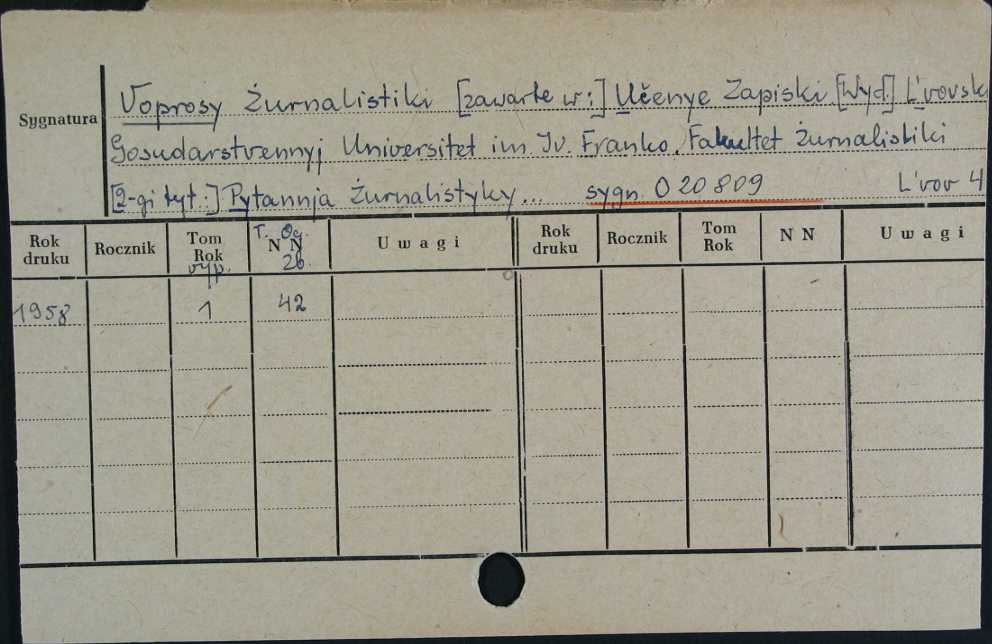 Sygnatura
Voprosy Żurnalistiki [zawarte w:] Učenye Zapiski [Wyd.] L'vovsk
Gosudarstvennyj Universitet im. Iv. Franko. Fakultet Żurnalistiki
[2-gi tyt.:] Pytannja Żurnalistyky... sygn. O 20809 L'vov 4
Rok druku Rocznik Tom Rok vyp. T. Og. N N zb. Uwagi Rok druku Rocznik Tom Rok N N Uwagi
1958 1 42